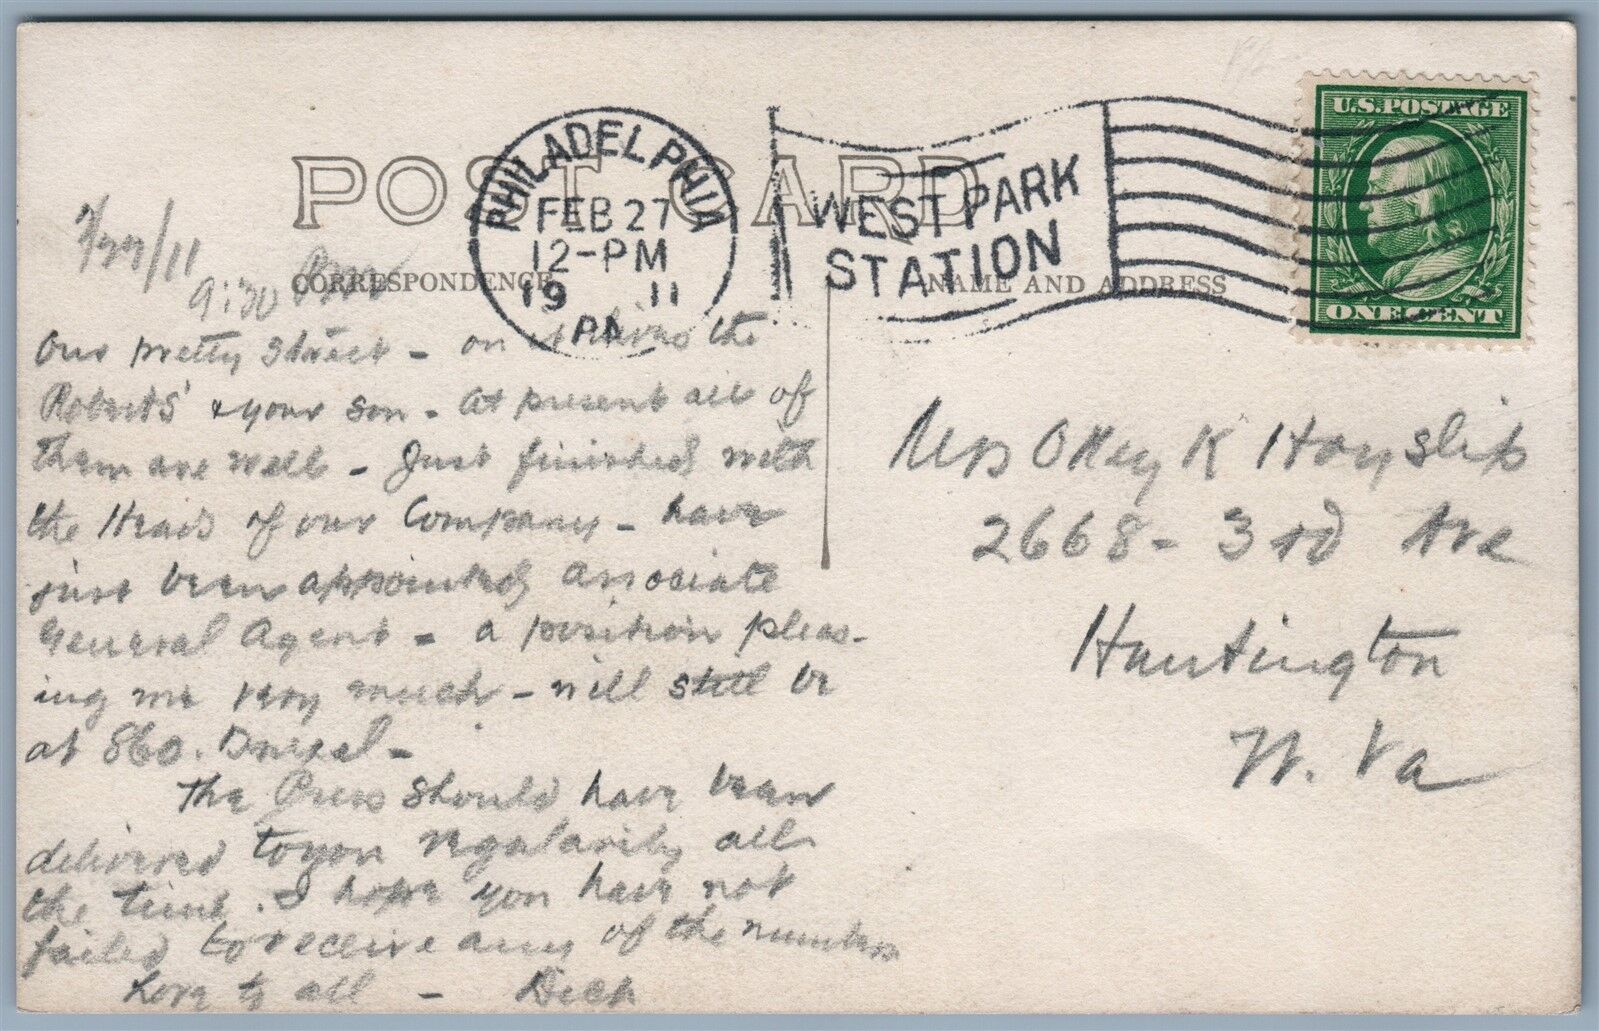 POST CARD
PHILADELPHIA
FEB 27
12-PM
19 11
PA
WEST PARK
STATION
U.S. POSTAGE
ONE CENT
CORRESPONDENCE
NAME AND ADDRESS
2/27/11
9:30 Pm
Our pretty Street - on it lives the
Roberts' & your son - At present all of
them are well - Just finished with
the Heads of our Company - have
just been appointed associate
General Agent - a position pleas-
ing me very much - will still be
at 860. Drexel -
The Press should have been
delivered to you regularily all
the time. I hope you have not
failed to receive any of the numbers
Love to all - Dick
Mrs Olley K Hayslip
2668 - 3rd Ave
Huntington
W. Va